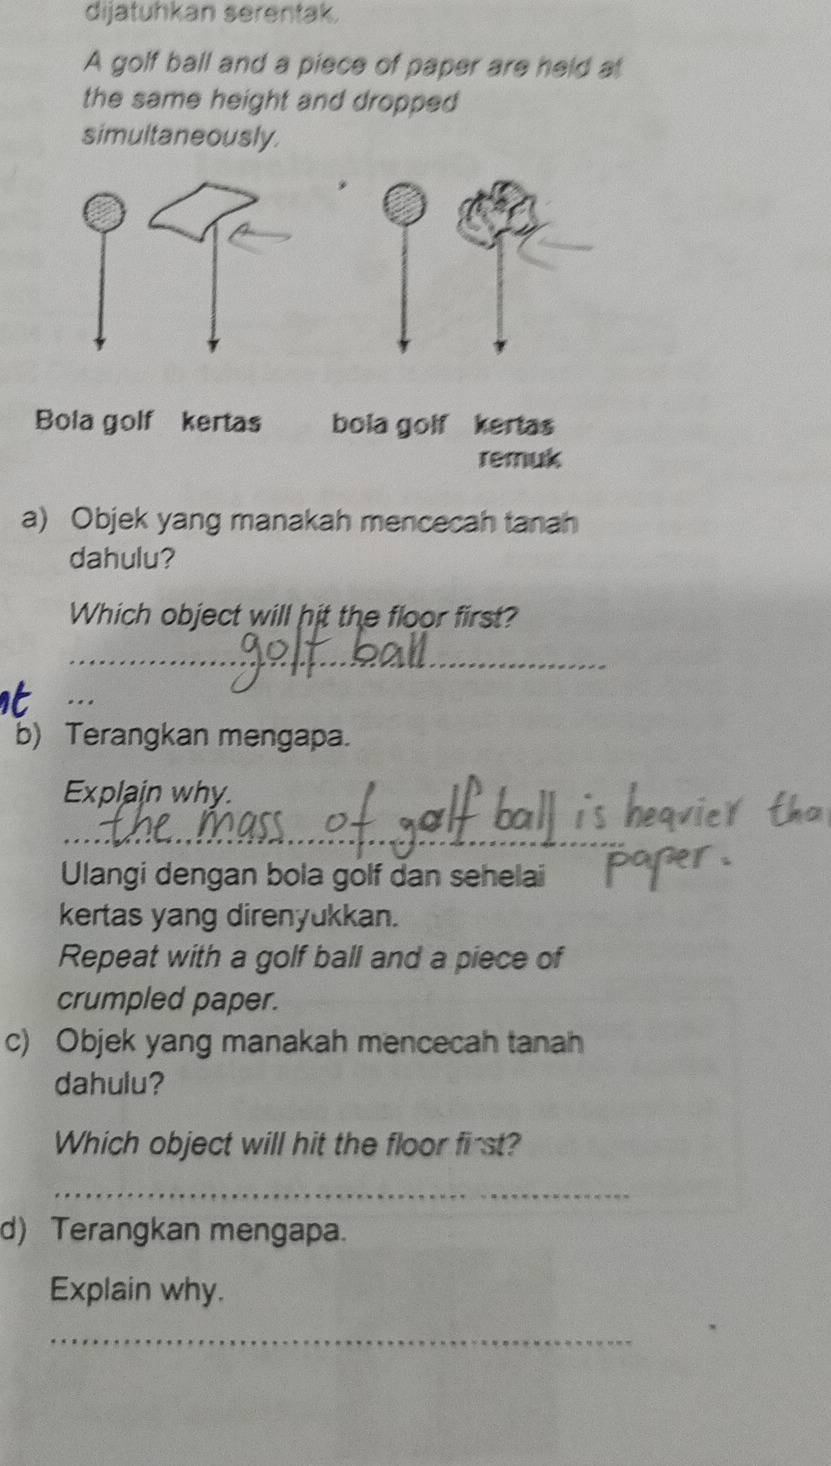 dijatuhkan serentak.
A golf ball and a piece of paper are held at
the same height and dropped
simultaneously.
Bola golf kertas bola golf kertas
remuk
a) Objek yang manakah mencecah tanah
dahulu?
Which object will hit the floor first?
golf ball
...
b) Terangkan mengapa.
Explain why.
the mass of golf ball is heavier
paper.
Ulangi dengan bola golf dan sehelai
kertas yang direnyukkan.
Repeat with a golf ball and a piece of
crumpled paper.
c) Objek yang manakah mencecah tanah
dahulu?
Which object will hit the floor first?
d) Terangkan mengapa.
Explain why.